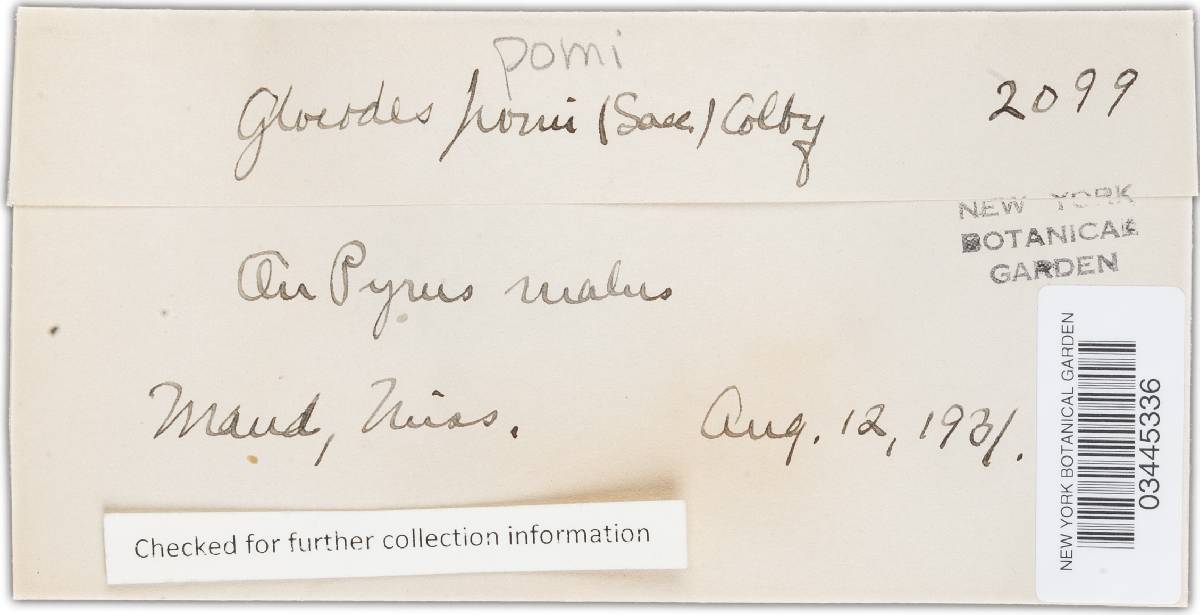 pomi
Gloeodes pomi (Sacc.) Colby 2099
NEW YORK
BOTANICAL
GARDEN
On Pyrus malus
Maud, Miss. Aug. 12, 1931.
Checked for further collection information
NEW YORK BOTANICAL GARDEN
03445336